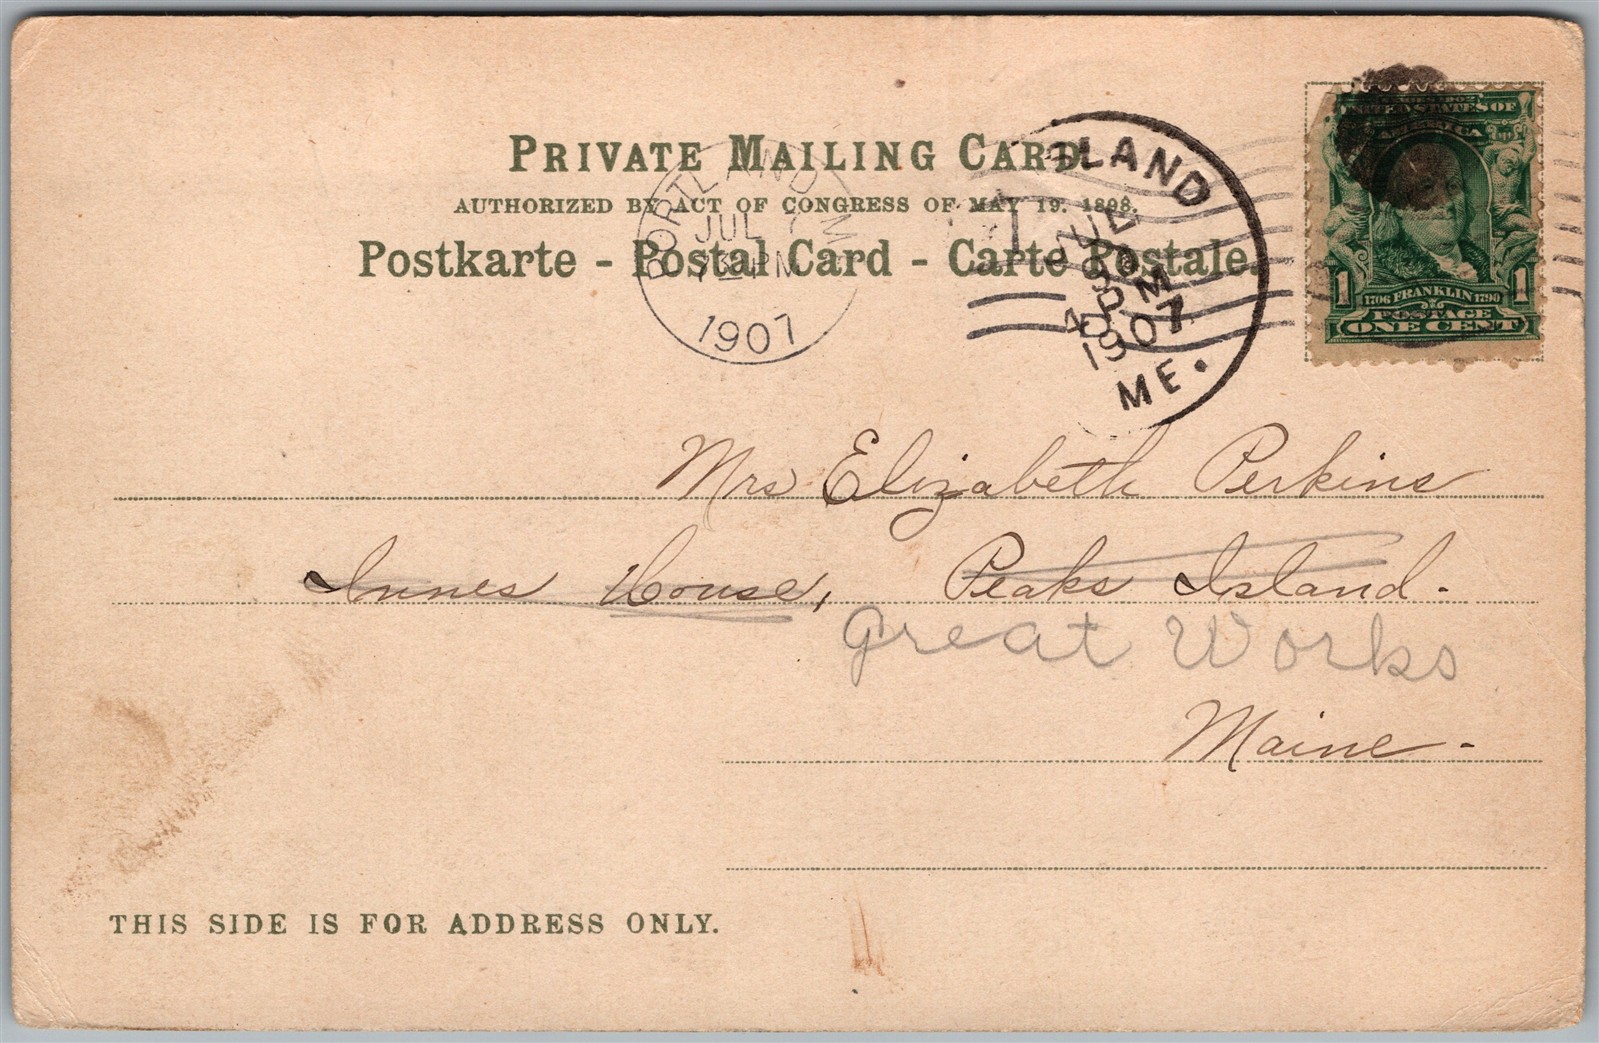 PRIVATE MAILING CARD.
AUTHORIZED BY ACT OF CONGRESS OF MAY 19. 1898.
Postkarte - Postal Card - Carte Postale.
PORTLAND
JUL
1907
LAND
4 PM
1907
ME.
UNITED STATES OF
AMERICA
1 1706 FRANKLIN 1790 1
POSTAGE
ONE CENT
Mrs Elizabeth Perkins
Innes House, Peaks Island.
Great Works
Maine.
THIS SIDE IS FOR ADDRESS ONLY.